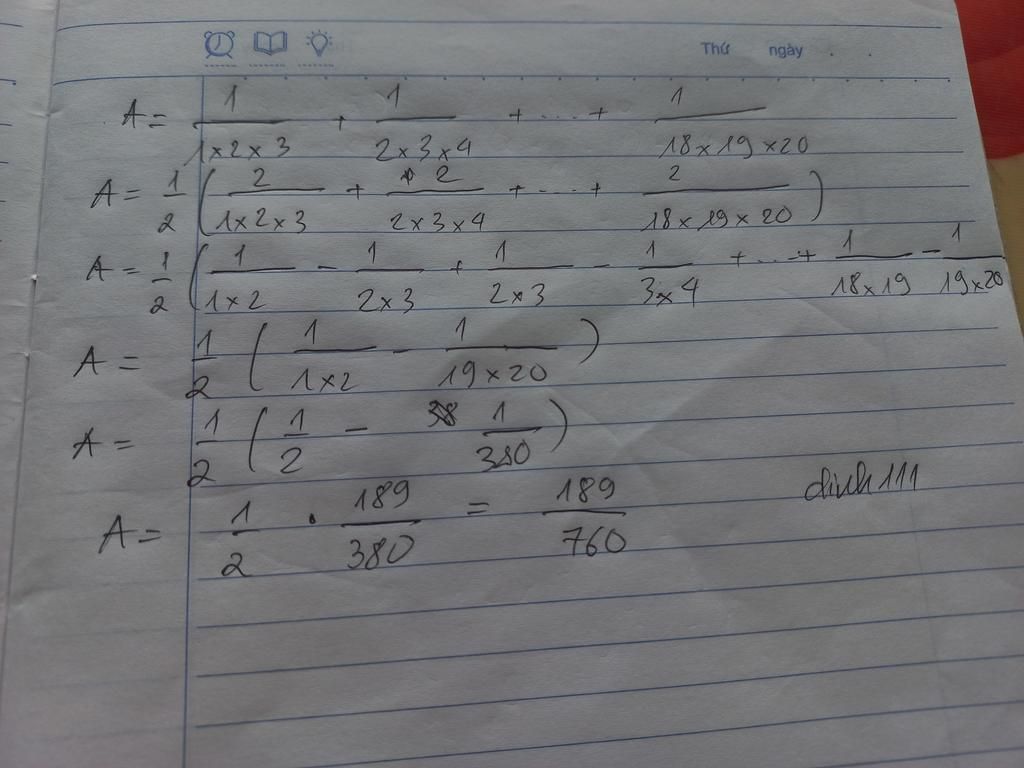 Thứ ngày . .
A = 1/(1×2×3) + 1/(2×3×4) + ... + 1/(18×19×20)
A = 1/2 ( 2/(1×2×3) + 2/(2×3×4) + ... + 2/(18×19×20) )
A = 1/2 ( 1/(1×2) - 1/(2×3) + 1/(2×3) - 1/(3×4) + ... + 1/(18×19) - 1/(19×20)
A = 1/2 ( 1/(1×2) - 1/(19×20) )
A = 1/2 ( 1/2 - 1/380 )
A = 1/2 . 189/380 = 189/760
dinh111